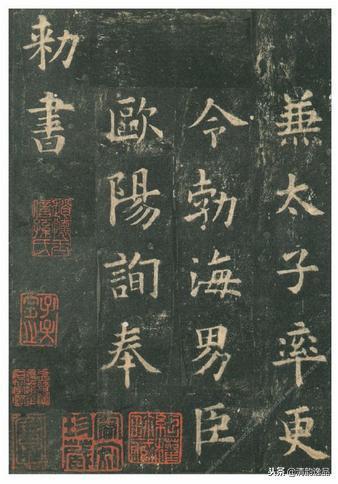 兼太子率更
令勃海男臣
歐陽詢奉
勑書
头条 @清韵逸品